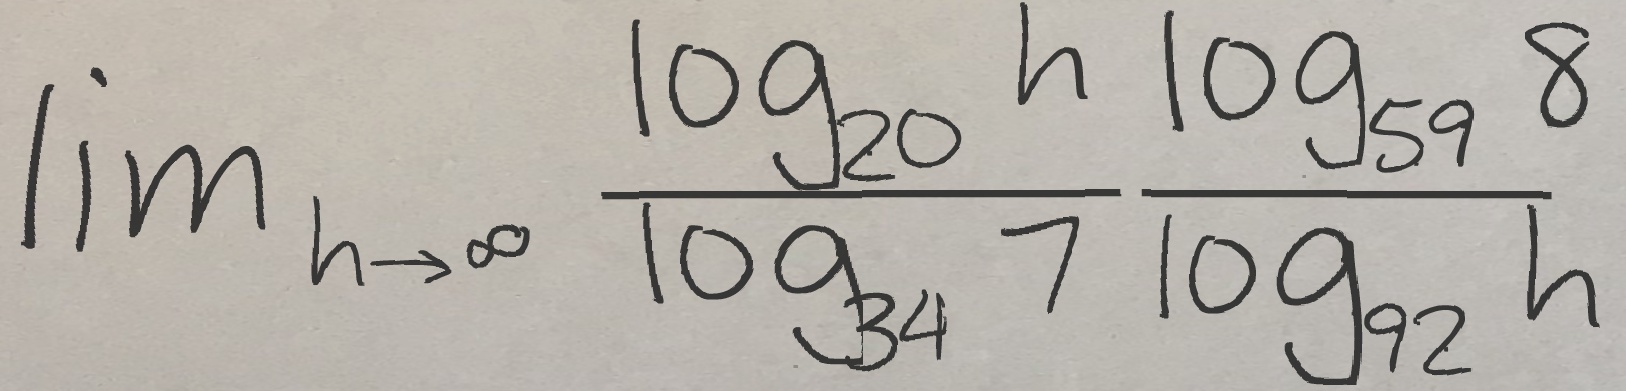 \lim_{h \to \infty} \frac{\log_{20} h}{\log_{34} 7} \frac{\log_{59} 8}{\log_{92} h}